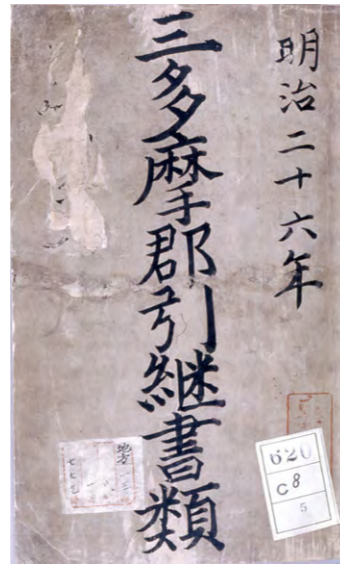 明治二十六年
三多摩郡引継書類
地方
620
C8
5